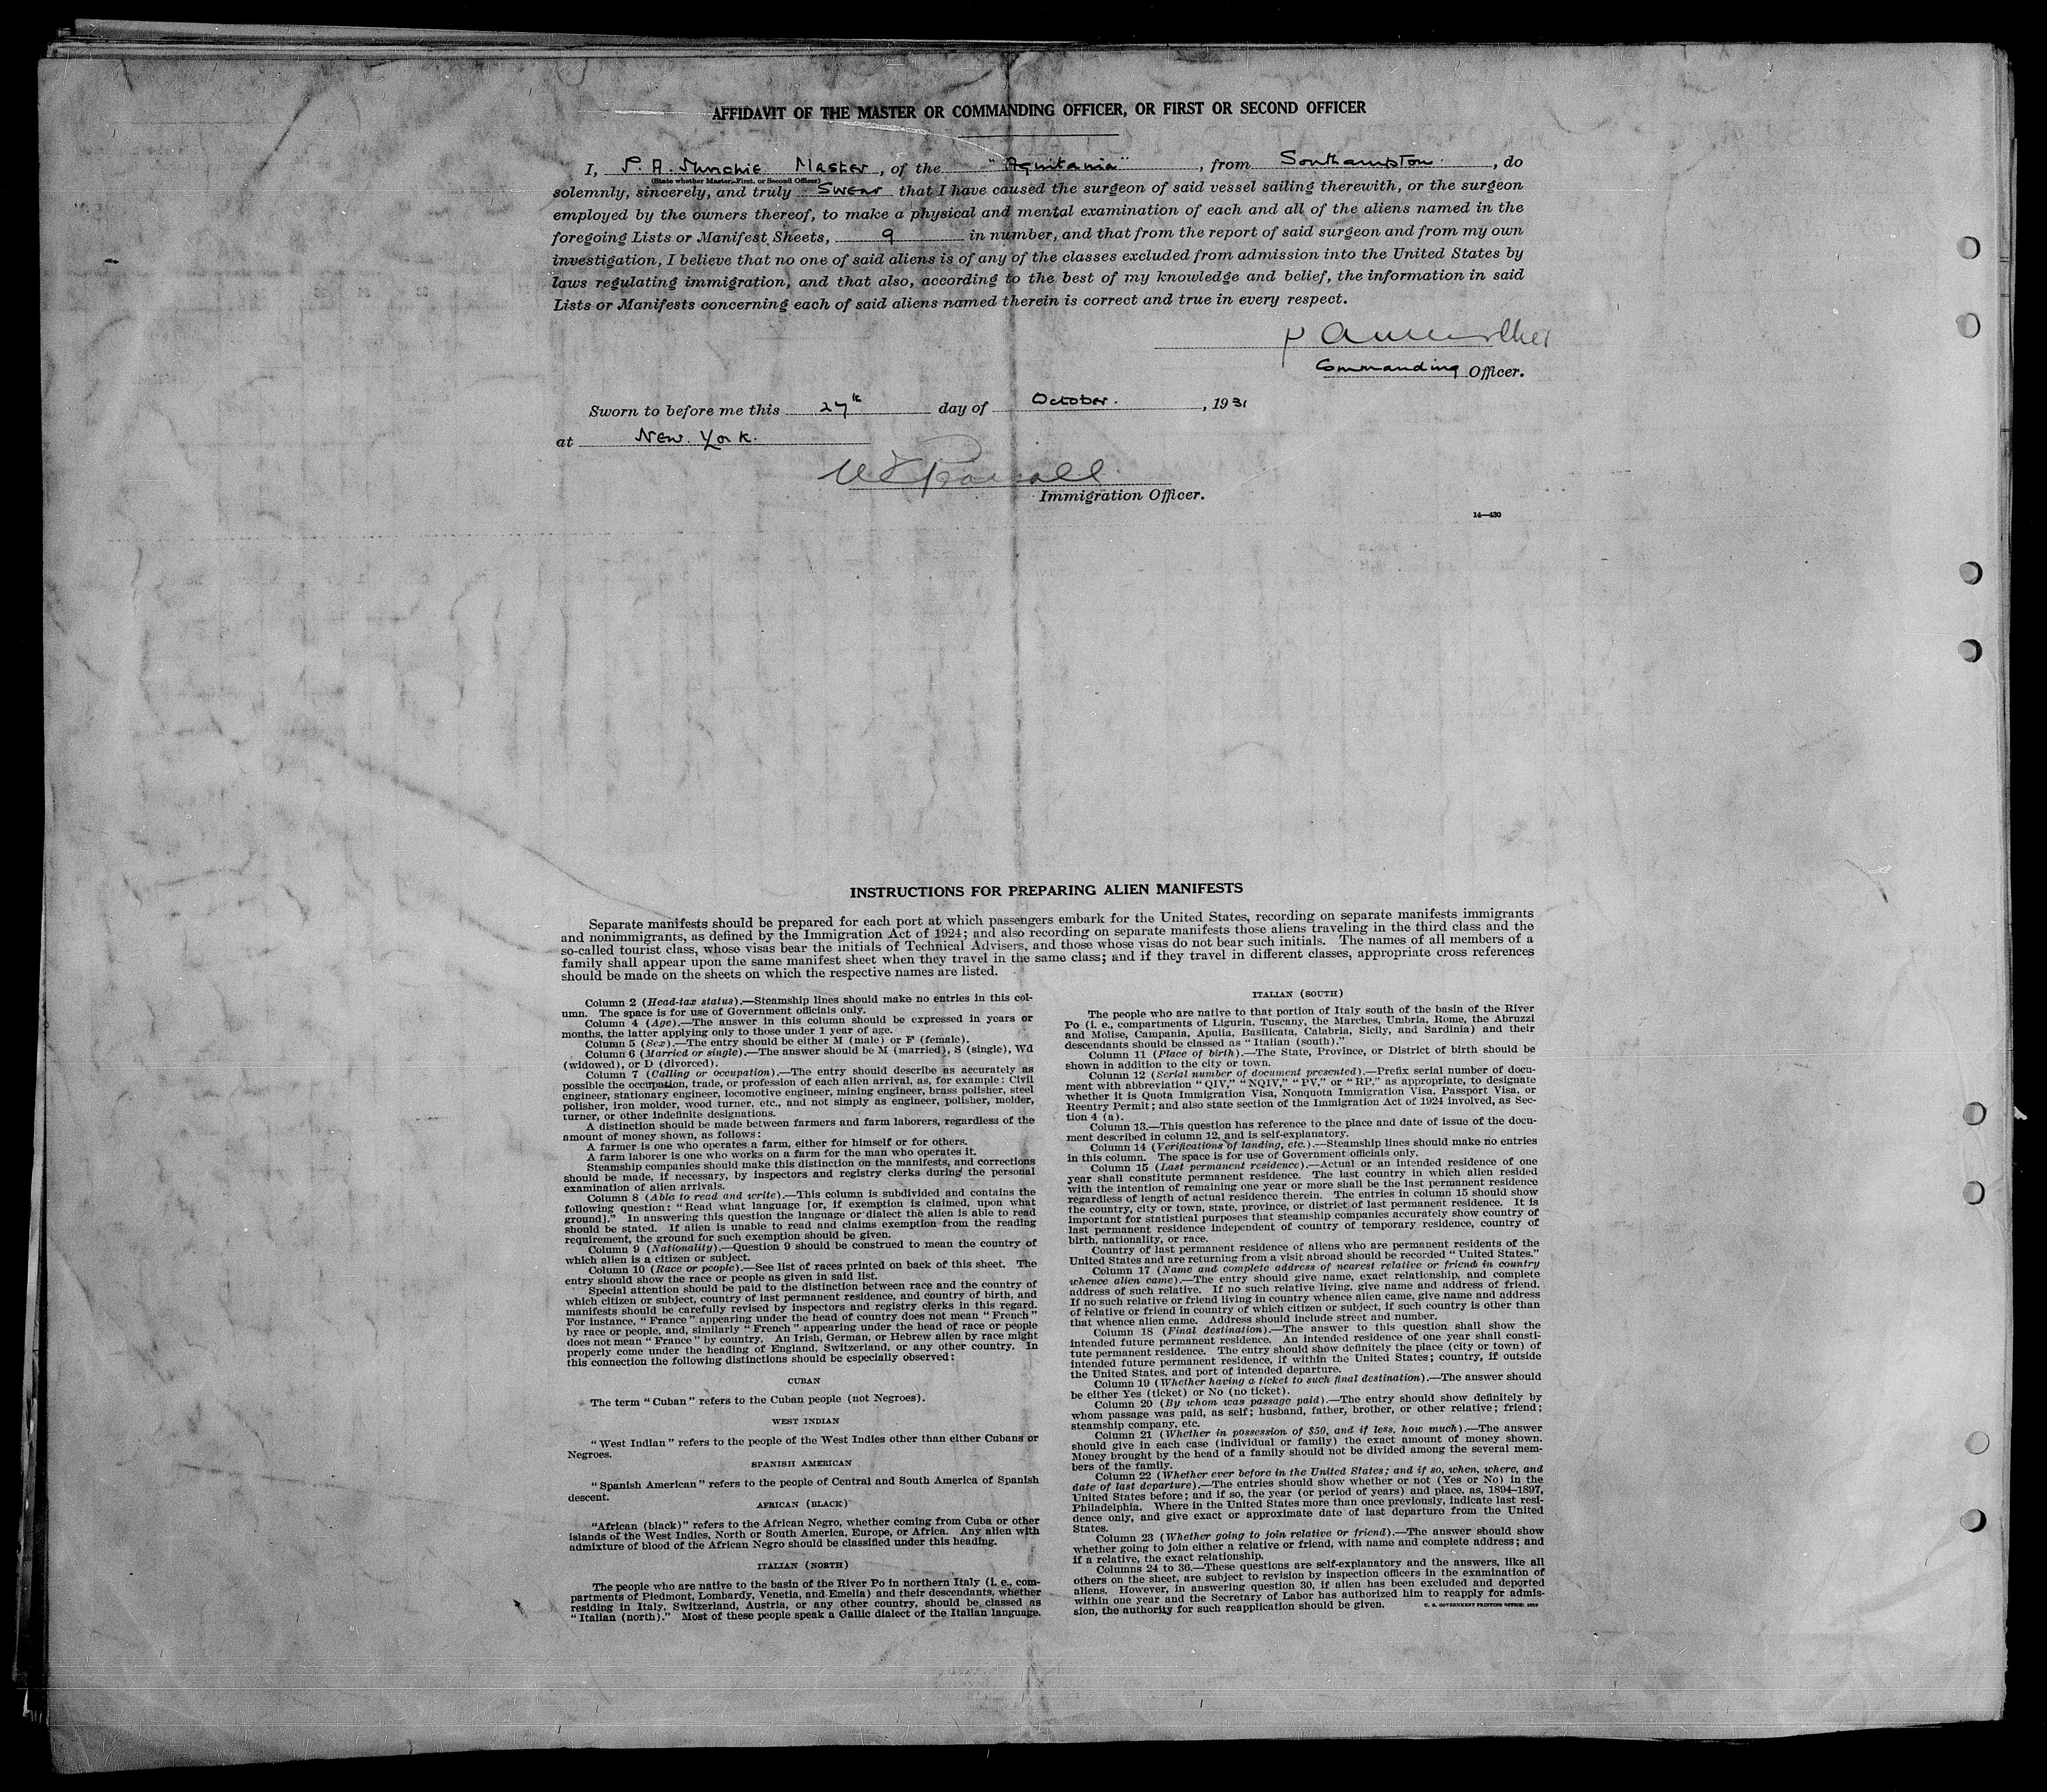 AFFIDAVIT OF THE MASTER OR COMMANDING OFFICER, OR FIRST OR SECOND OFFICER
I, P. A. Murchie Master, of the "Aquitania", from Southampton., do
(State whether Master, First, or Second Officer)
solemnly, sincerely, and truly Swear that I have caused the surgeon of said vessel sailing therewith, or the surgeon
employed by the owners thereof, to make a physical and mental examination of each and all of the aliens named in the
foregoing Lists or Manifest Sheets, 9 in number, and that from the report of said surgeon and from my own
investigation, I believe that no one of said aliens is of any of the classes excluded from admission into the United States by
laws regulating immigration, and that also, according to the best of my knowledge and belief, the information in said
Lists or Manifests concerning each of said aliens named therein is correct and true in every respect.
Commanding Officer.
Sworn to before me this 27th day of October., 1931
at New. York.
Immigration Officer.
14—430
INSTRUCTIONS FOR PREPARING ALIEN MANIFESTS
Separate manifests should be prepared for each port at which passengers embark for the United States, recording on separate manifests immigrants
and nonimmigrants, as defined by the Immigration Act of 1924; and also recording on separate manifests those aliens traveling in the third class and the
so-called tourist class, whose visas bear the initials of Technical Advisers, and those whose visas do not bear such initials. The names of all members of a
family shall appear upon the same manifest sheet when they travel in the same class; and if they travel in different classes, appropriate cross references
should be made on the sheets on which the respective names are listed.
Column 2 (Head-tax status).—Steamship lines should make no entries in this col-
umn. The space is for use of Government officials only.
Column 4 (Age).—The answer in this column should be expressed in years or
months, the latter applying only to those under 1 year of age.
Column 5 (Sex).—The entry should be either M (male) or F (female).
Column 6 (Married or single).—The answer should be M (married), S (single), Wd
(widowed), or D (divorced).
Column 7 (Calling or occupation).—The entry should describe as accurately as
possible the occupation, trade, or profession of each alien arrival, as, for example: Civil
engineer, stationary engineer, locomotive engineer, mining engineer, brass polisher, steel
polisher, iron molder, wood turner, etc., and not simply as engineer, polisher, molder,
turner, or other indefinite designations.
A distinction should be made between farmers and farm laborers, regardless of the
amount of money shown, as follows:
A farmer is one who operates a farm, either for himself or for others.
A farm laborer is one who works on a farm for the man who operates it.
Steamship companies should make this distinction on the manifests, and corrections
should be made, if necessary, by inspectors and registry clerks during the personal
examination of alien arrivals.
Column 8 (Able to read and write).—This column is subdivided and contains the
following question: "Read what language [or, if exemption is claimed, upon what
ground]." In answering this question the language or dialect the alien is able to read
should be stated. If alien is unable to read and claims exemption from the reading
requirement, the ground for such exemption should be given.
Column 9 (Nationality).—Question 9 should be construed to mean the country of
which alien is a citizen or subject.
Column 10 (Race or people).—See list of races printed on back of this sheet. The
entry should show the race or people as given in said list.
Special attention should be paid to the distinction between race and the country of
which citizen or subject, country of last permanent residence, and country of birth, and
manifests should be carefully revised by inspectors and registry clerks in this regard.
For instance, "France" appearing under the head of country does not mean "French"
by race or people, and, similarly "French" appearing under the head of race or people
does not mean "France" by country. An Irish, German, or Hebrew alien by race might
properly come under the heading of England, Switzerland, or any other country. In
this connection the following distinctions should be especially observed:
CUBAN
The term "Cuban" refers to the Cuban people (not Negroes).
WEST INDIAN
"West Indian" refers to the people of the West Indies other than either Cubans or
Negroes.
SPANISH AMERICAN
"Spanish American" refers to the people of Central and South America of Spanish
descent.
AFRICAN (BLACK)
"African (black)" refers to the African Negro, whether coming from Cuba or other
islands of the West Indies, North or South America, Europe, or Africa. Any alien with
admixture of blood of the African Negro should be classified under this heading.
ITALIAN (NORTH)
The people who are native to the basin of the River Po in northern Italy (i. e., com-
partments of Piedmont, Lombardy, Venetia, and Emelia) and their descendants, whether
residing in Italy, Switzerland, Austria, or any other country, should be classed as
"Italian (north)." Most of these people speak a Gallic dialect of the Italian language.
ITALIAN (SOUTH)
The people who are native to that portion of Italy south of the basin of the River
Po (i. e., compartments of Liguria, Tuscany, the Marches, Umbria, Rome, the Abruzzi
and Molise, Campania, Apulia, Basilicata, Calabria, Sicily, and Sardinia) and their
descendants should be classed as "Italian (south)."
Column 11 (Place of birth).—The State, Province, or District of birth should be
shown in addition to the city or town.
Column 12 (Serial number of document presented).—Prefix serial number of docu-
ment with abbreviation "QIV," "NQIV," "PV," or "RP," as appropriate, to designate
whether it is Quota Immigration Visa, Nonquota Immigration Visa, Passport Visa, or
Reentry Permit; and also state section of the Immigration Act of 1924 involved, as Sec-
tion 4 (a).
Column 13.—This question has reference to the place and date of issue of the docu-
ment described in column 12, and is self-explanatory.
Column 14 (Verifications of landing, etc.).—Steamship lines should make no entries
in this column. The space is for use of Government officials only.
Column 15 (Last permanent residence).—Actual or an intended residence of one
year shall constitute permanent residence. The last country in which alien resided
with the intention of remaining one year or more shall be the last permanent residence
regardless of length of actual residence therein. The entries in column 15 should show
the country, city or town, state, province, or district of last permanent residence. It is
important for statistical purposes that steamship companies accurately show country of
last permanent residence independent of country of temporary residence, country of
birth, nationality, or race.
Country of last permanent residence of aliens who are permanent residents of the
United States and are returning from a visit abroad should be recorded "United States."
Column 17 (Name and complete address of nearest relative or friend in country
whence alien came).—The entry should give name, exact relationship, and complete
address of such relative. If no such relative living, give name and address of friend.
If no such relative or friend living in country whence alien came, give name and address
of relative or friend in country of which citizen or subject, if such country is other than
that whence alien came. Address should include street and number.
Column 18 (Final destination).—The answer to this question shall show the
intended future permanent residence. An intended residence of one year shall consti-
tute permanent residence. The entry should show definitely the place (city or town) of
intended future permanent residence, if within the United States; country, if outside
the United States, and port of intended departure.
Column 19 (Whether having a ticket to such final destination).—The answer should
be either Yes (ticket) or No (no ticket).
Column 20 (By whom was passage paid).—The entry should show definitely by
whom passage was paid, as self; husband, father, brother, or other relative; friend;
steamship company, etc.
Column 21 (Whether in possession of $50, and if less, how much).—The answer
should give in each case (individual or family) the exact amount of money shown.
Money brought by the head of a family should not be divided among the several mem-
bers of the family.
Column 22 (Whether ever before in the United States; and if so, when, where, and
date of last departure).—The entries should show whether or not (Yes or No) in the
United States before; and if so, the year (or period of years) and place, as, 1894–1897,
Philadelphia. Where in the United States more than once previously, indicate last resi-
dence only, and give exact or approximate date of last departure from the United
States.
Column 23 (Whether going to join relative or friend).—The answer should show
whether going to join either a relative or friend, with name and complete address; and
if a relative, the exact relationship.
Columns 24 to 36.—These questions are self-explanatory and the answers, like all
others on the sheet, are subject to revision by inspection officers in the examination of
aliens. However, in answering question 30, if alien has been excluded and deported
within one year and the Secretary of Labor has authorized him to reapply for admis-
sion, the authority for such reapplication should be given.
U. S. GOVERNMENT PRINTING OFFICE: